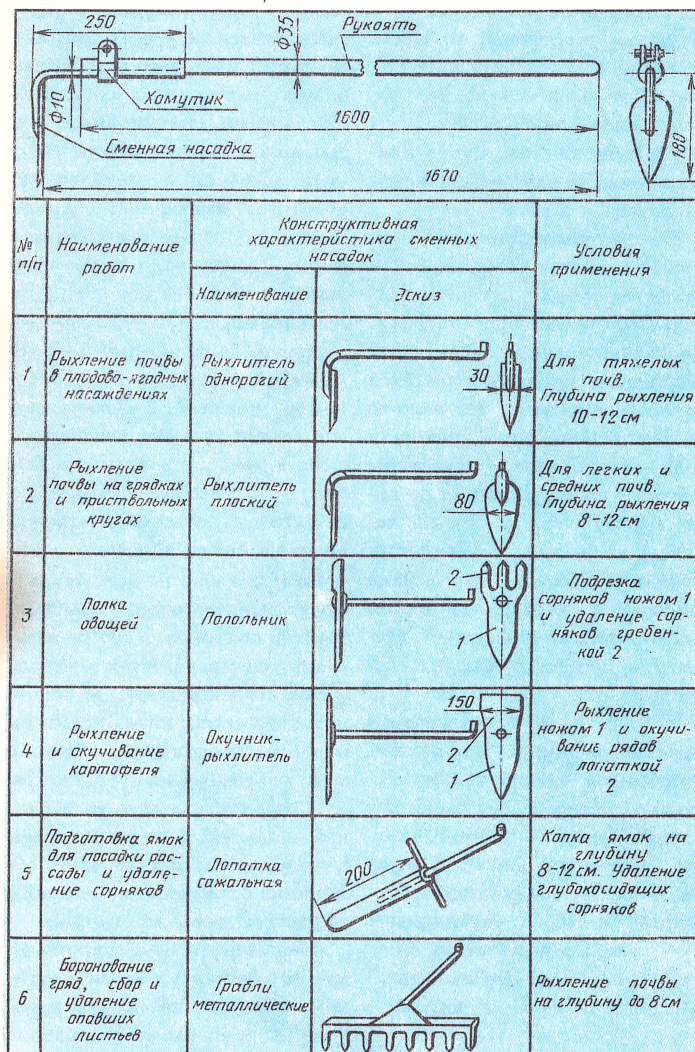 250
Ф35
Рукоять
Ф10
Хомутик
1600
180
Сменная насадка
1670
№
п/п
Наименование
работ
Конструктивная
характеристика сменных
насадок
Наименование
Эскиз
Условия
применения
1
Рыхление почвы
в плодово-ягодных
насаждениях
Рыхлитель
однорогий
30
Для тяжелых
почв.
Глубина рыхления
10-12 см
2
Рыхление
почвы на грядках
и приствольных
кругах
Рыхлитель
плоский
80
Для легких и
средних почв.
Глубина рыхления
8-12 см
3
Полка
овощей
Полольник
2
1
Подрезка
сорняков ножом 1
и удаление сор-
няков гребен-
кой 2
4
Рыхление
и окучивание
картофеля
Окучник-
рыхлитель
150
2
1
Рыхление
ножом 1 и окучи-
вание рядов
лопаткой
2
5
Подготовка ямок
для посадки рас-
сады и удале-
ние сорняков
Лопатка
сажальная
200
Копка ямок на
глубину
8-12 см. Удаление
глубокосидящих
сорняков
6
Боронование
гряд, сбор и
удаление
опавших
листьев
Грабли
металлические
Рыхление почвы
на глубину до 8 см